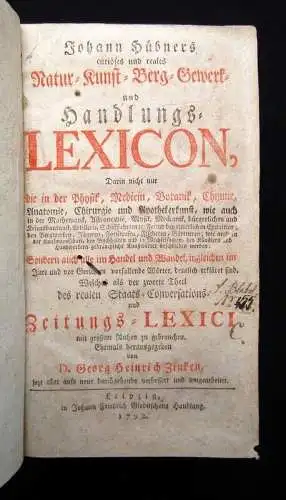 Johann Hübners
curiöses und reales
Natur-Kunst-Berg-Gewerk-
und
Handlungs-
LEXICON,
Darin nicht nur
die in der Physik, Medicin, Botanik, Chymie,
Anatomie, Chirurgie und Apothekerkunst, wie auch
in der Mathematik, Astronomie, Musik, Mechanik, bürgerlichen und
Sondern auch alle im Handel und Wandel, ingleichen im
Jure und vor Gerichten vorfallende Wörter, deutlich erkläret sind.
Welches als der zweite Theil
des realen Staats-Conversations-
und
Zeitungs-LEXICI
mit großem Nutzen zu gebrauchen.
Ehemals herausgegeben
von
D. Georg Heinrich Zinken,
jezt aber aufs neue durchgehends verbessert und umgearbeitet.
Leipzig,
in Johann Friedrich Gleditschens Handlung.
1792.